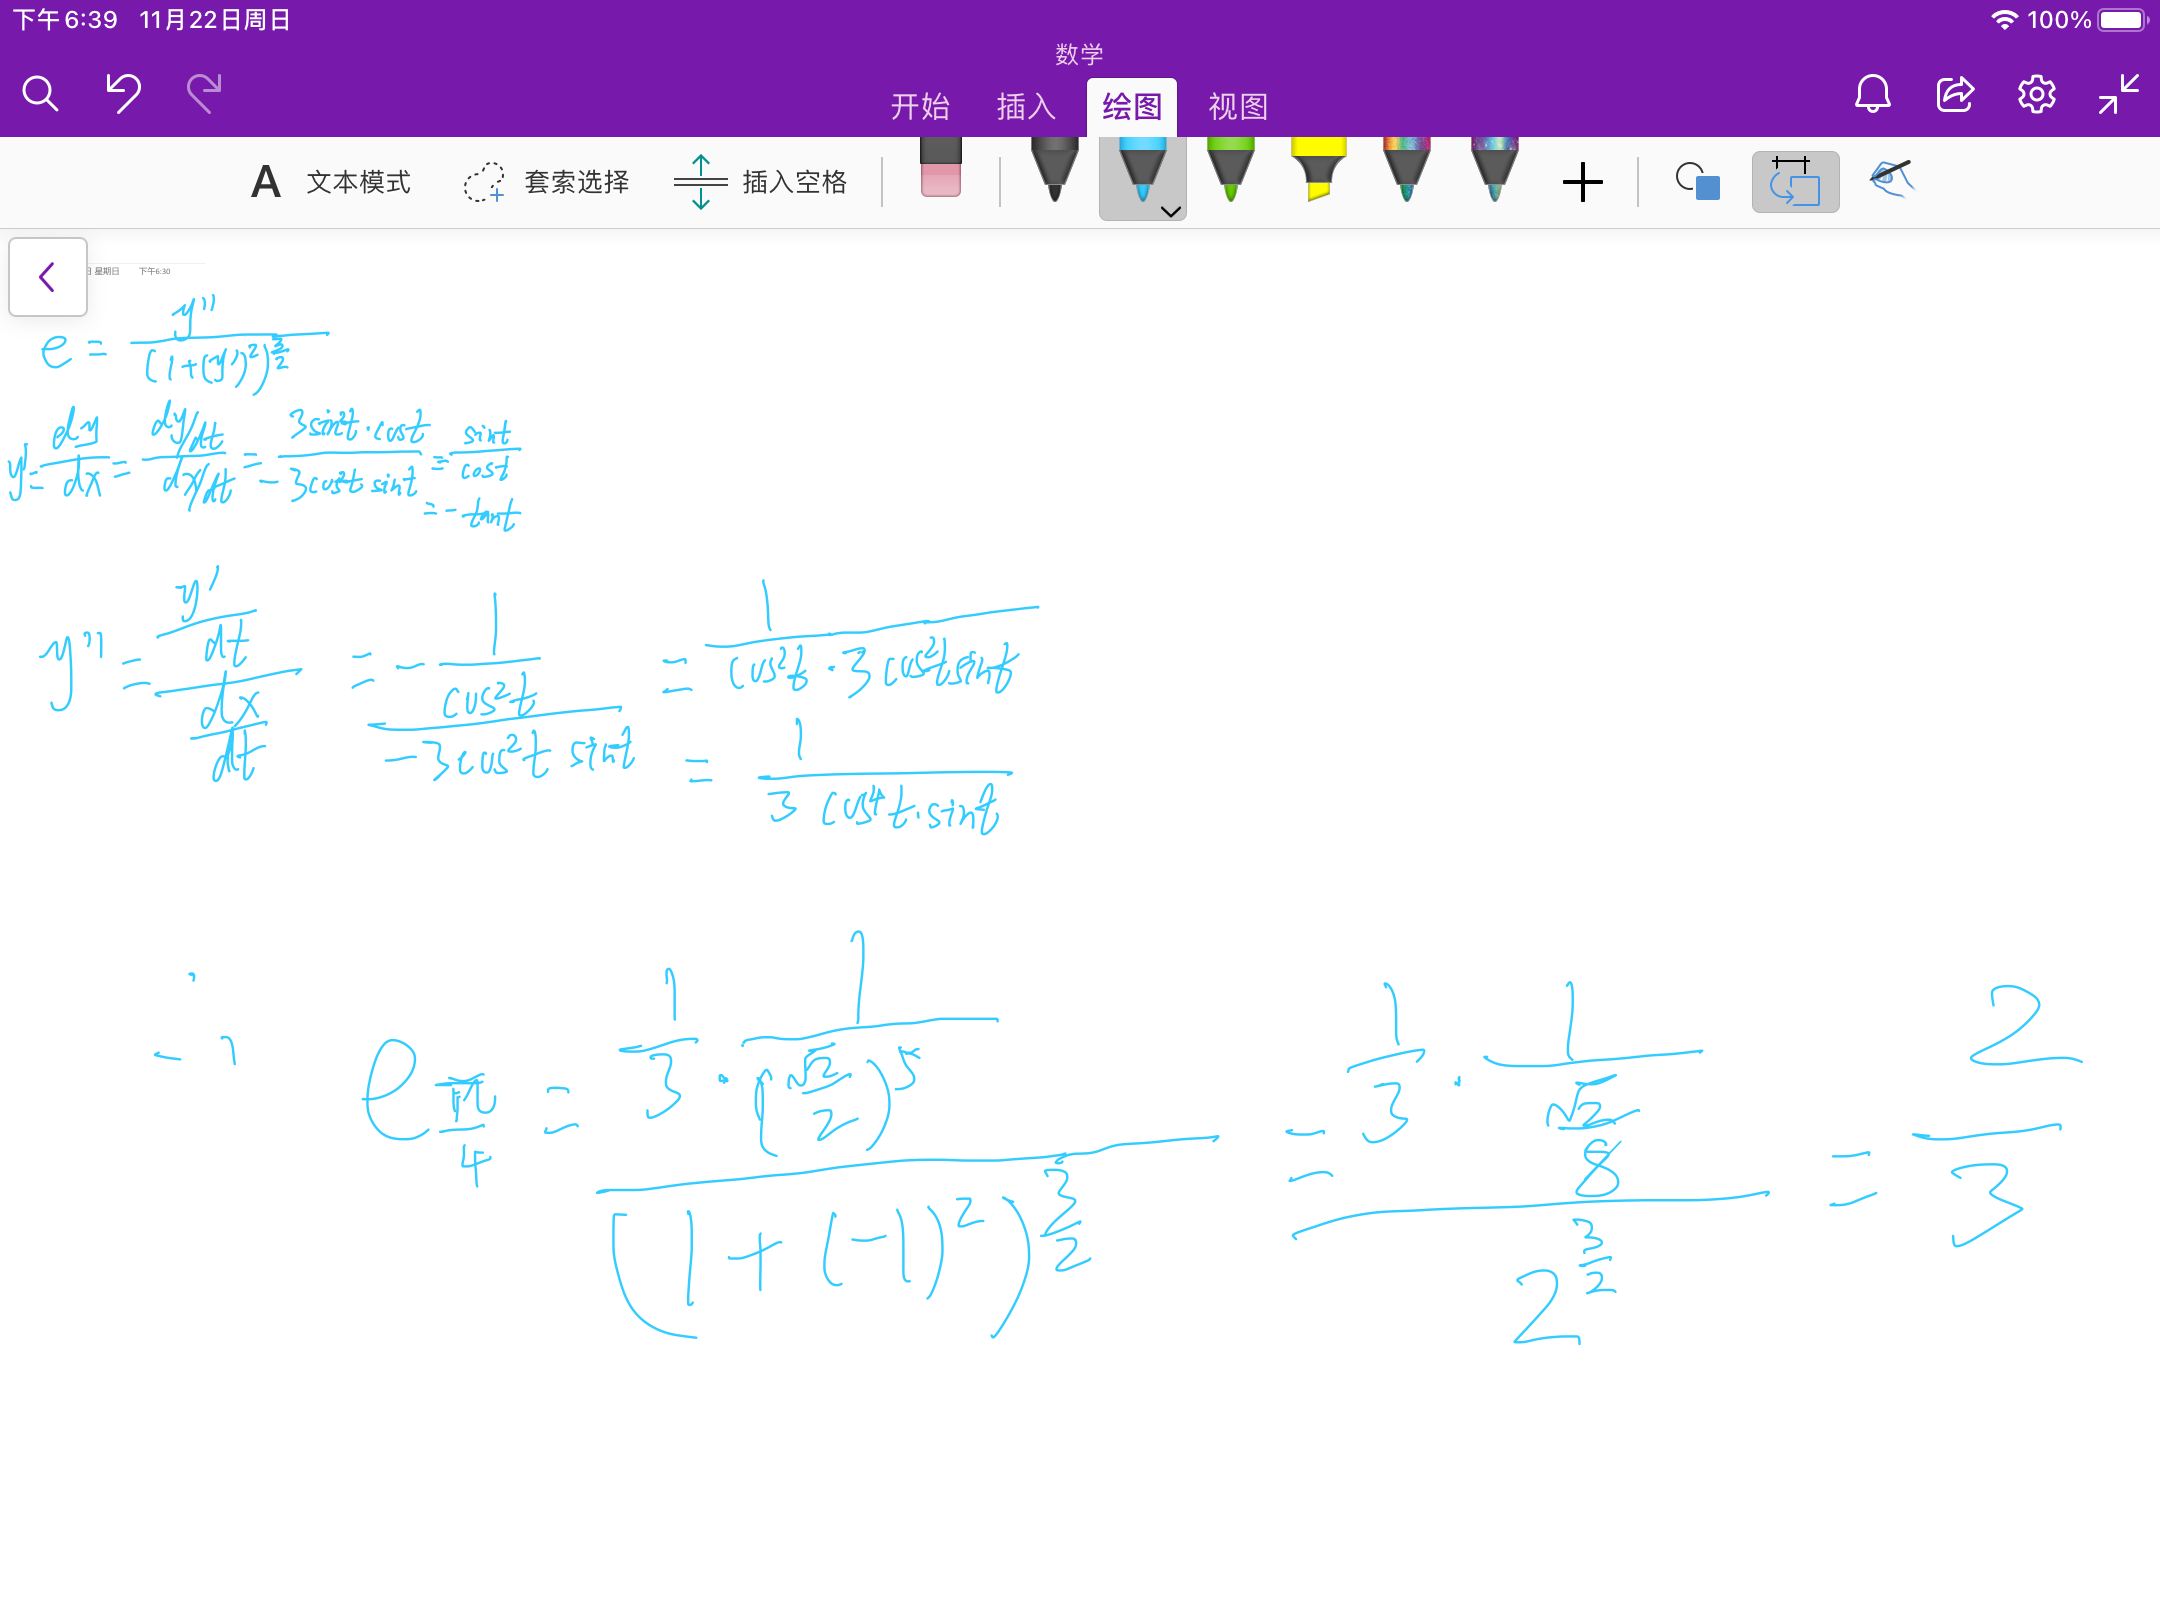 下午6:39 11月22日周日 100%
数学
开始 插入 绘图 视图
A 文本模式 套索选择 插入空格
日 星期日 下午6:30
e = y'' / (1+(y')²)^(3/2)
y' = dy/dx = (dy/dt)/(dx/dt) = 3sin²t·cost / -3cos²t sint = sint/cost
= -tant
y'' = (y'/dt)/(dx/dt) = -(1/cos²t)/(-3cos²t sint) = 1/(cos²t·3cos²t sint)
= 1/(3cos⁴t·sint)
∴ e_(π/4) = (1/3·1/(√2/2)^5)/(1+(-1)²)^(3/2) = (1/3·1/(√2/8))/2^(3/2) = 2/3